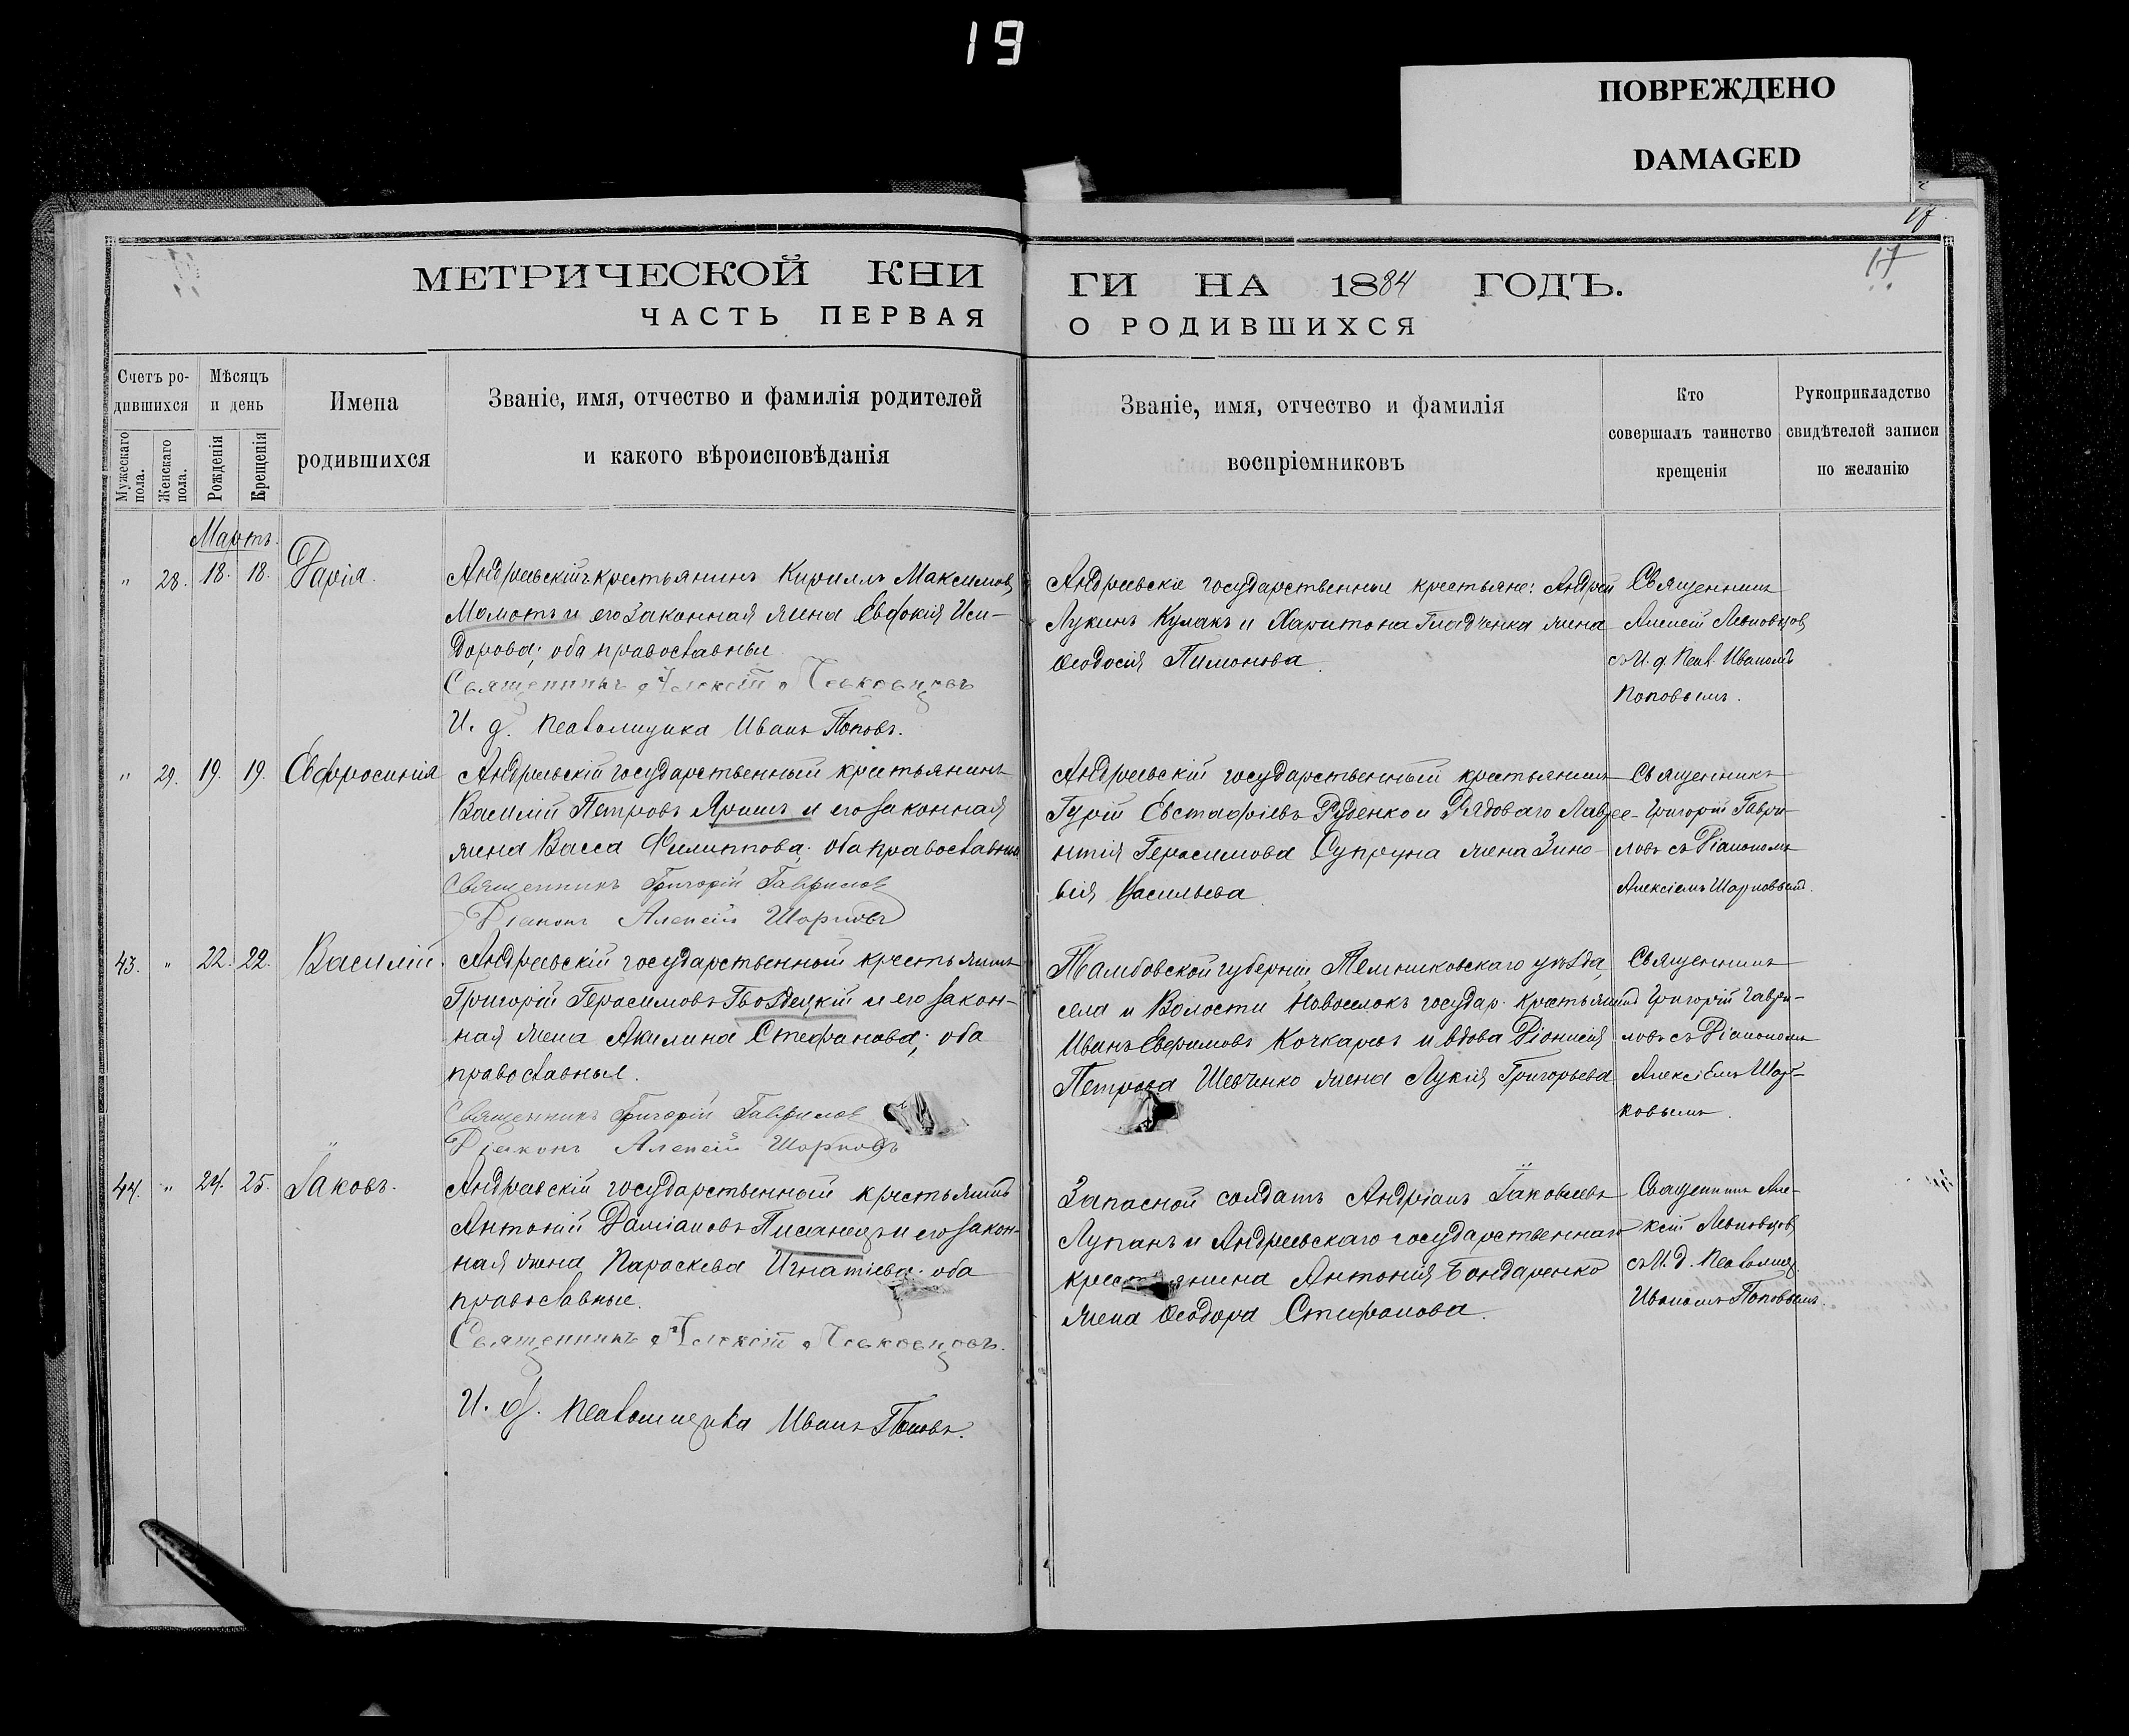 19
ПОВРЕЖДЕНО
DAMAGED
17
17
МЕТРИЧЕСКОЙ КНИ
ГИ НА 1884 ГОДЪ.
ЧАСТЬ ПЕРВАЯ
О РОДИВШИХСЯ
Счетъ ро-
дившихся
Мужескаго пола.
Женскаго пола.
Мѣсяцъ
и день
Рожденія
Крещенія
Имена
родившихся
Званіе, имя, отчество и фамилія родителей
и какого вѣроисповѣданія
Званіе, имя, отчество и фамилія
воспріемниковъ
Кто
совершалъ таинство
крещенія
Рукоприкладство
свидѣтелей записи
по желанію
Мартъ.
" 28. 18. 18. Дарія.
Андреевскій крестьянинъ Кириллъ Максимовъ
Момотъ и его законная жена Евдокія Иси-
дорова; оба православные
Священникъ Алексій Левковцовъ
И. д. псаломщика Иванъ Поповъ.
Андреевскіе государственные крестьяне: Андрей
Лукинъ Кулакъ и Харитона Гладченка жена
Ѳеодосія Пимонова.
Священникъ
Алексій Левковцовъ
съ И. д. Псал. Иваномъ
Поповымъ.
" 29. 19. 19. Евфросинія
Андреевскій государственный крестьянинъ
Василій Петровъ Ярошъ и его законная
жена Васса Филиппова; оба православные
Священникъ Григорій Гавриловъ
Діаконъ Алексій Шарковъ
Андреевскій государственный крестьянинъ
Гурій Евстафіевъ Руденко и Рядоваго Лавре-
нтія Герасимова Супруна жена Зино-
вія Васильева
Священникъ
Григорій Гаври-
ловъ съ Діакономъ
Алексіемъ Шарковымъ.
43. " 22. 22. Василій.
Андреевскій государственный крестьянинъ
Григорій Герасимовъ Гвоздецкій и его закон-
ная жена Акилина Стефанова; оба
православные.
Священникъ Григорій Гавриловъ
Діаконъ Алексій Шарковъ
Тамбовской губерніи, Темниковскаго уѣзда,
села и Волости Новоселокъ государ. крестьянинъ
Иванъ Ефримовъ Кочкаревъ и вдова Діонисія
Петрова Шевченко жена Лукія Григорьева
Священникъ
Григорій Гаври-
ловъ съ Діакономъ
Алексіемъ Шар-
ковымъ.
44. " 24. 25. Іаковъ.
Андреевскій государственный крестьянинъ
Антоній Даміановъ Писанецъ и его закон-
ная жена Параскева Игнатіева; оба
православные.
Священникъ Алексій Левковцовъ.
И. д. псаломщика Иванъ Поповъ.
Запасной солдатъ Андріанъ Іаковлевъ
Лупанъ и Андреевскаго государственнаго
крестьянина Антонія Бондаренко
жена Ѳеодора Стефанова.
Священникъ Але-
ксій Левковцовъ
съ И. д. Псаломщ.
Иваномъ Поповымъ.